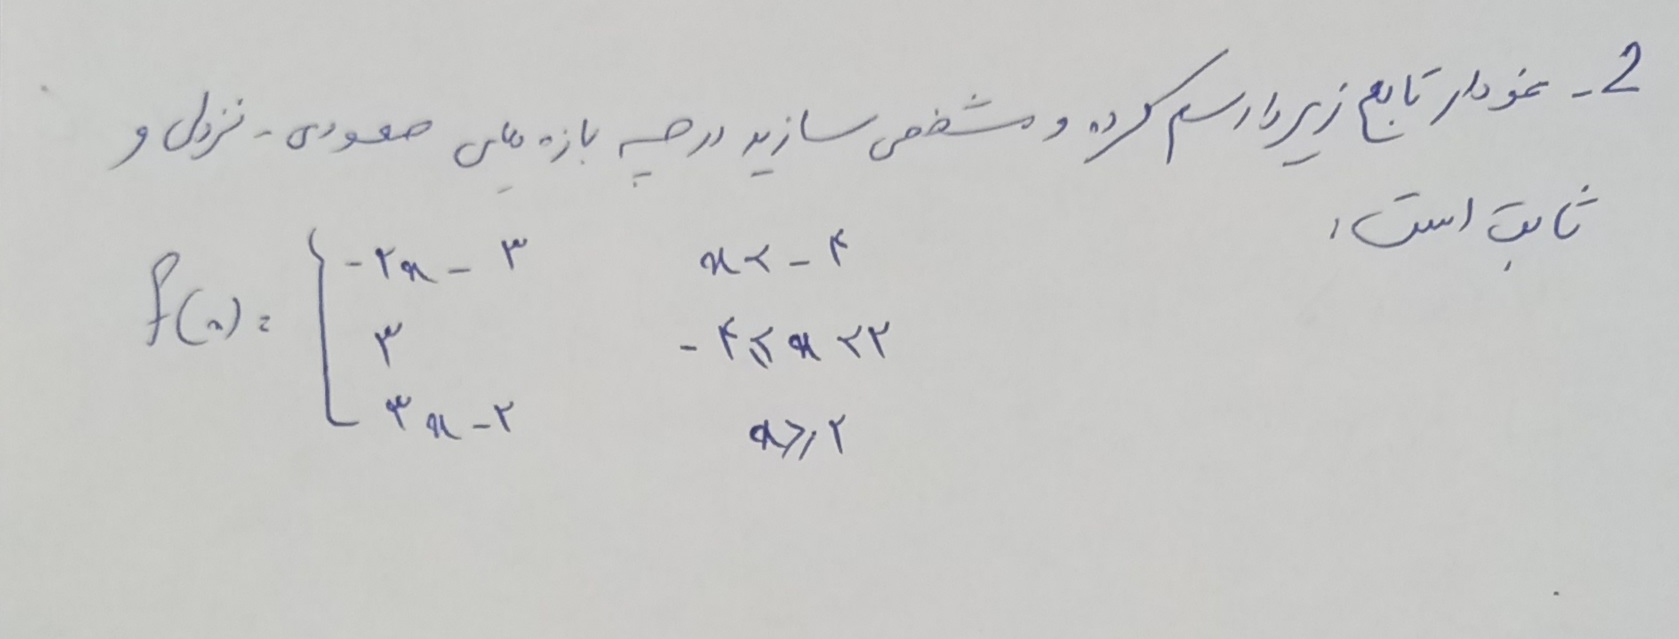 2- نمودار تابع زیر را رسم کرده و مشخص سازید در چه بازه هایی صعودی - نزولی و
ثابت است؛
f(x) = { -۲x - ۳    x < -۴
۳    -۴ ≤ x < ۲
۳x - ۲    x ≥ ۲